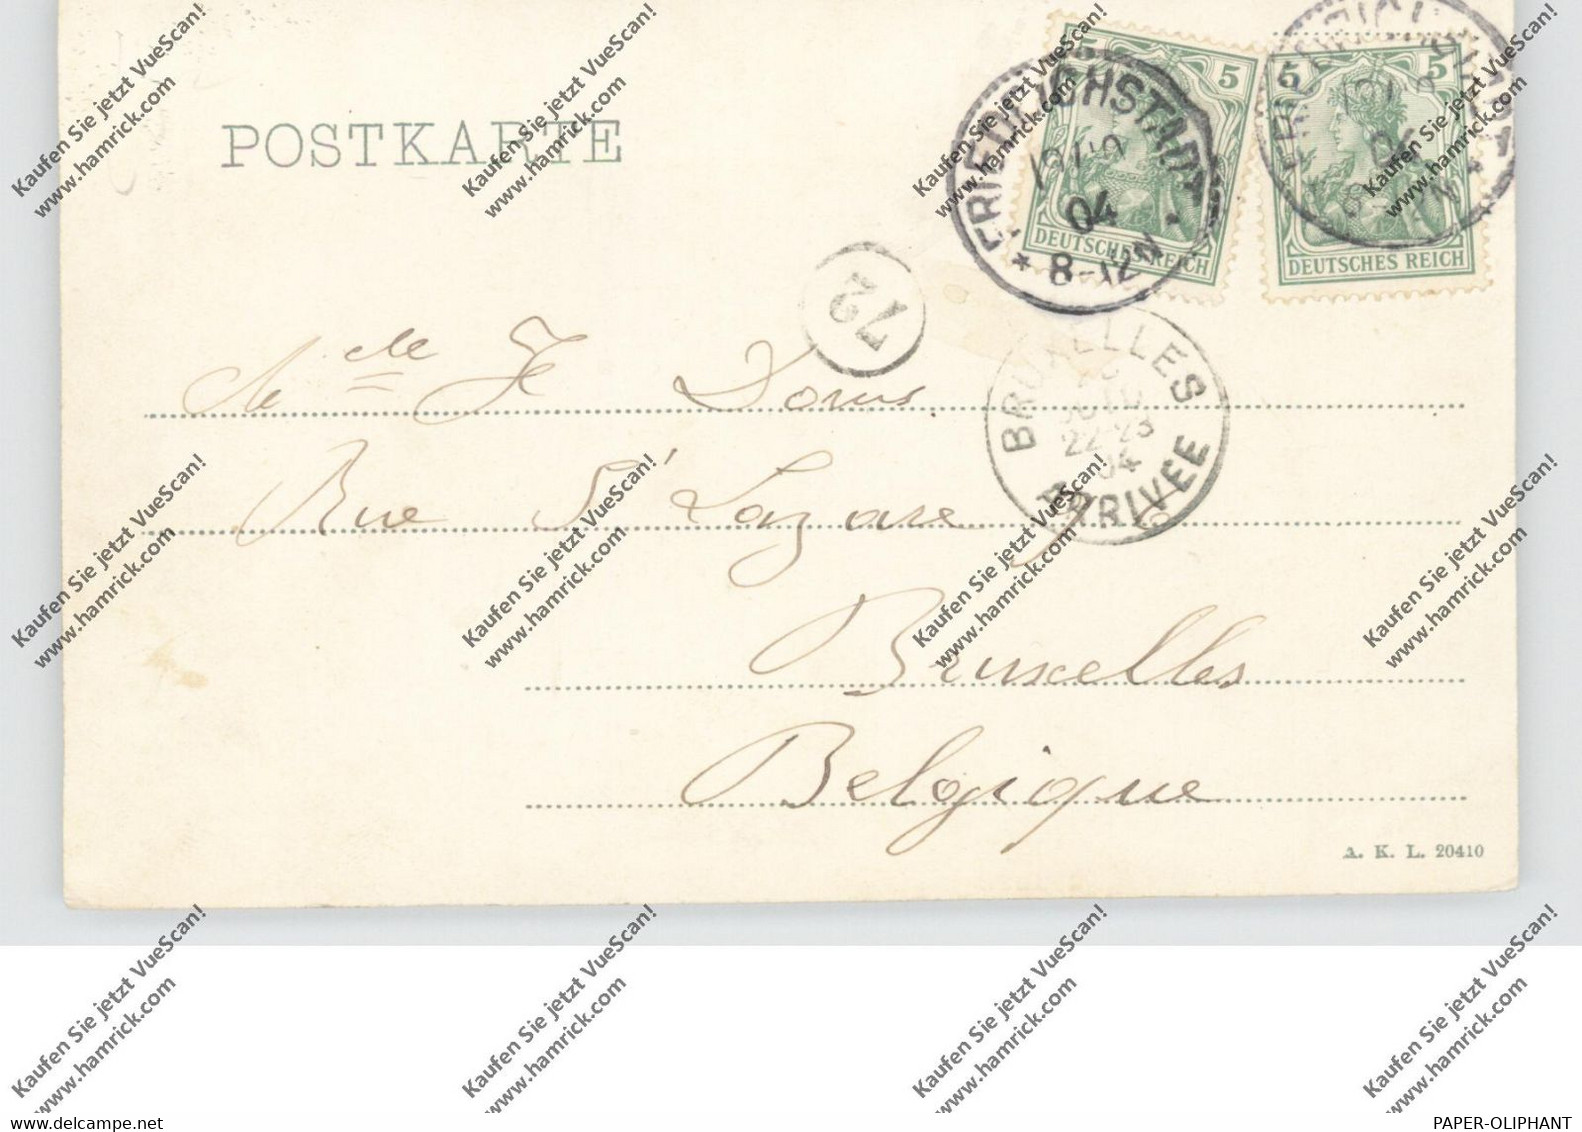 POSTKARTE
5
5 5
FRIEDRICHSTADT
04
* 8-12N *
DEUTSCHES REICH
DEUTSCHES REICH
04
72
BRUXELLES
22-23
04
ARRIVÉE
Melle J Dorus
Rue St Lazare 9
Bruxelles
Belgique
A. K. L. 20410
Kaufen Sie jetzt VueScan!
www.hamrick.com
www.delcampe.net
PAPER-OLIPHANT